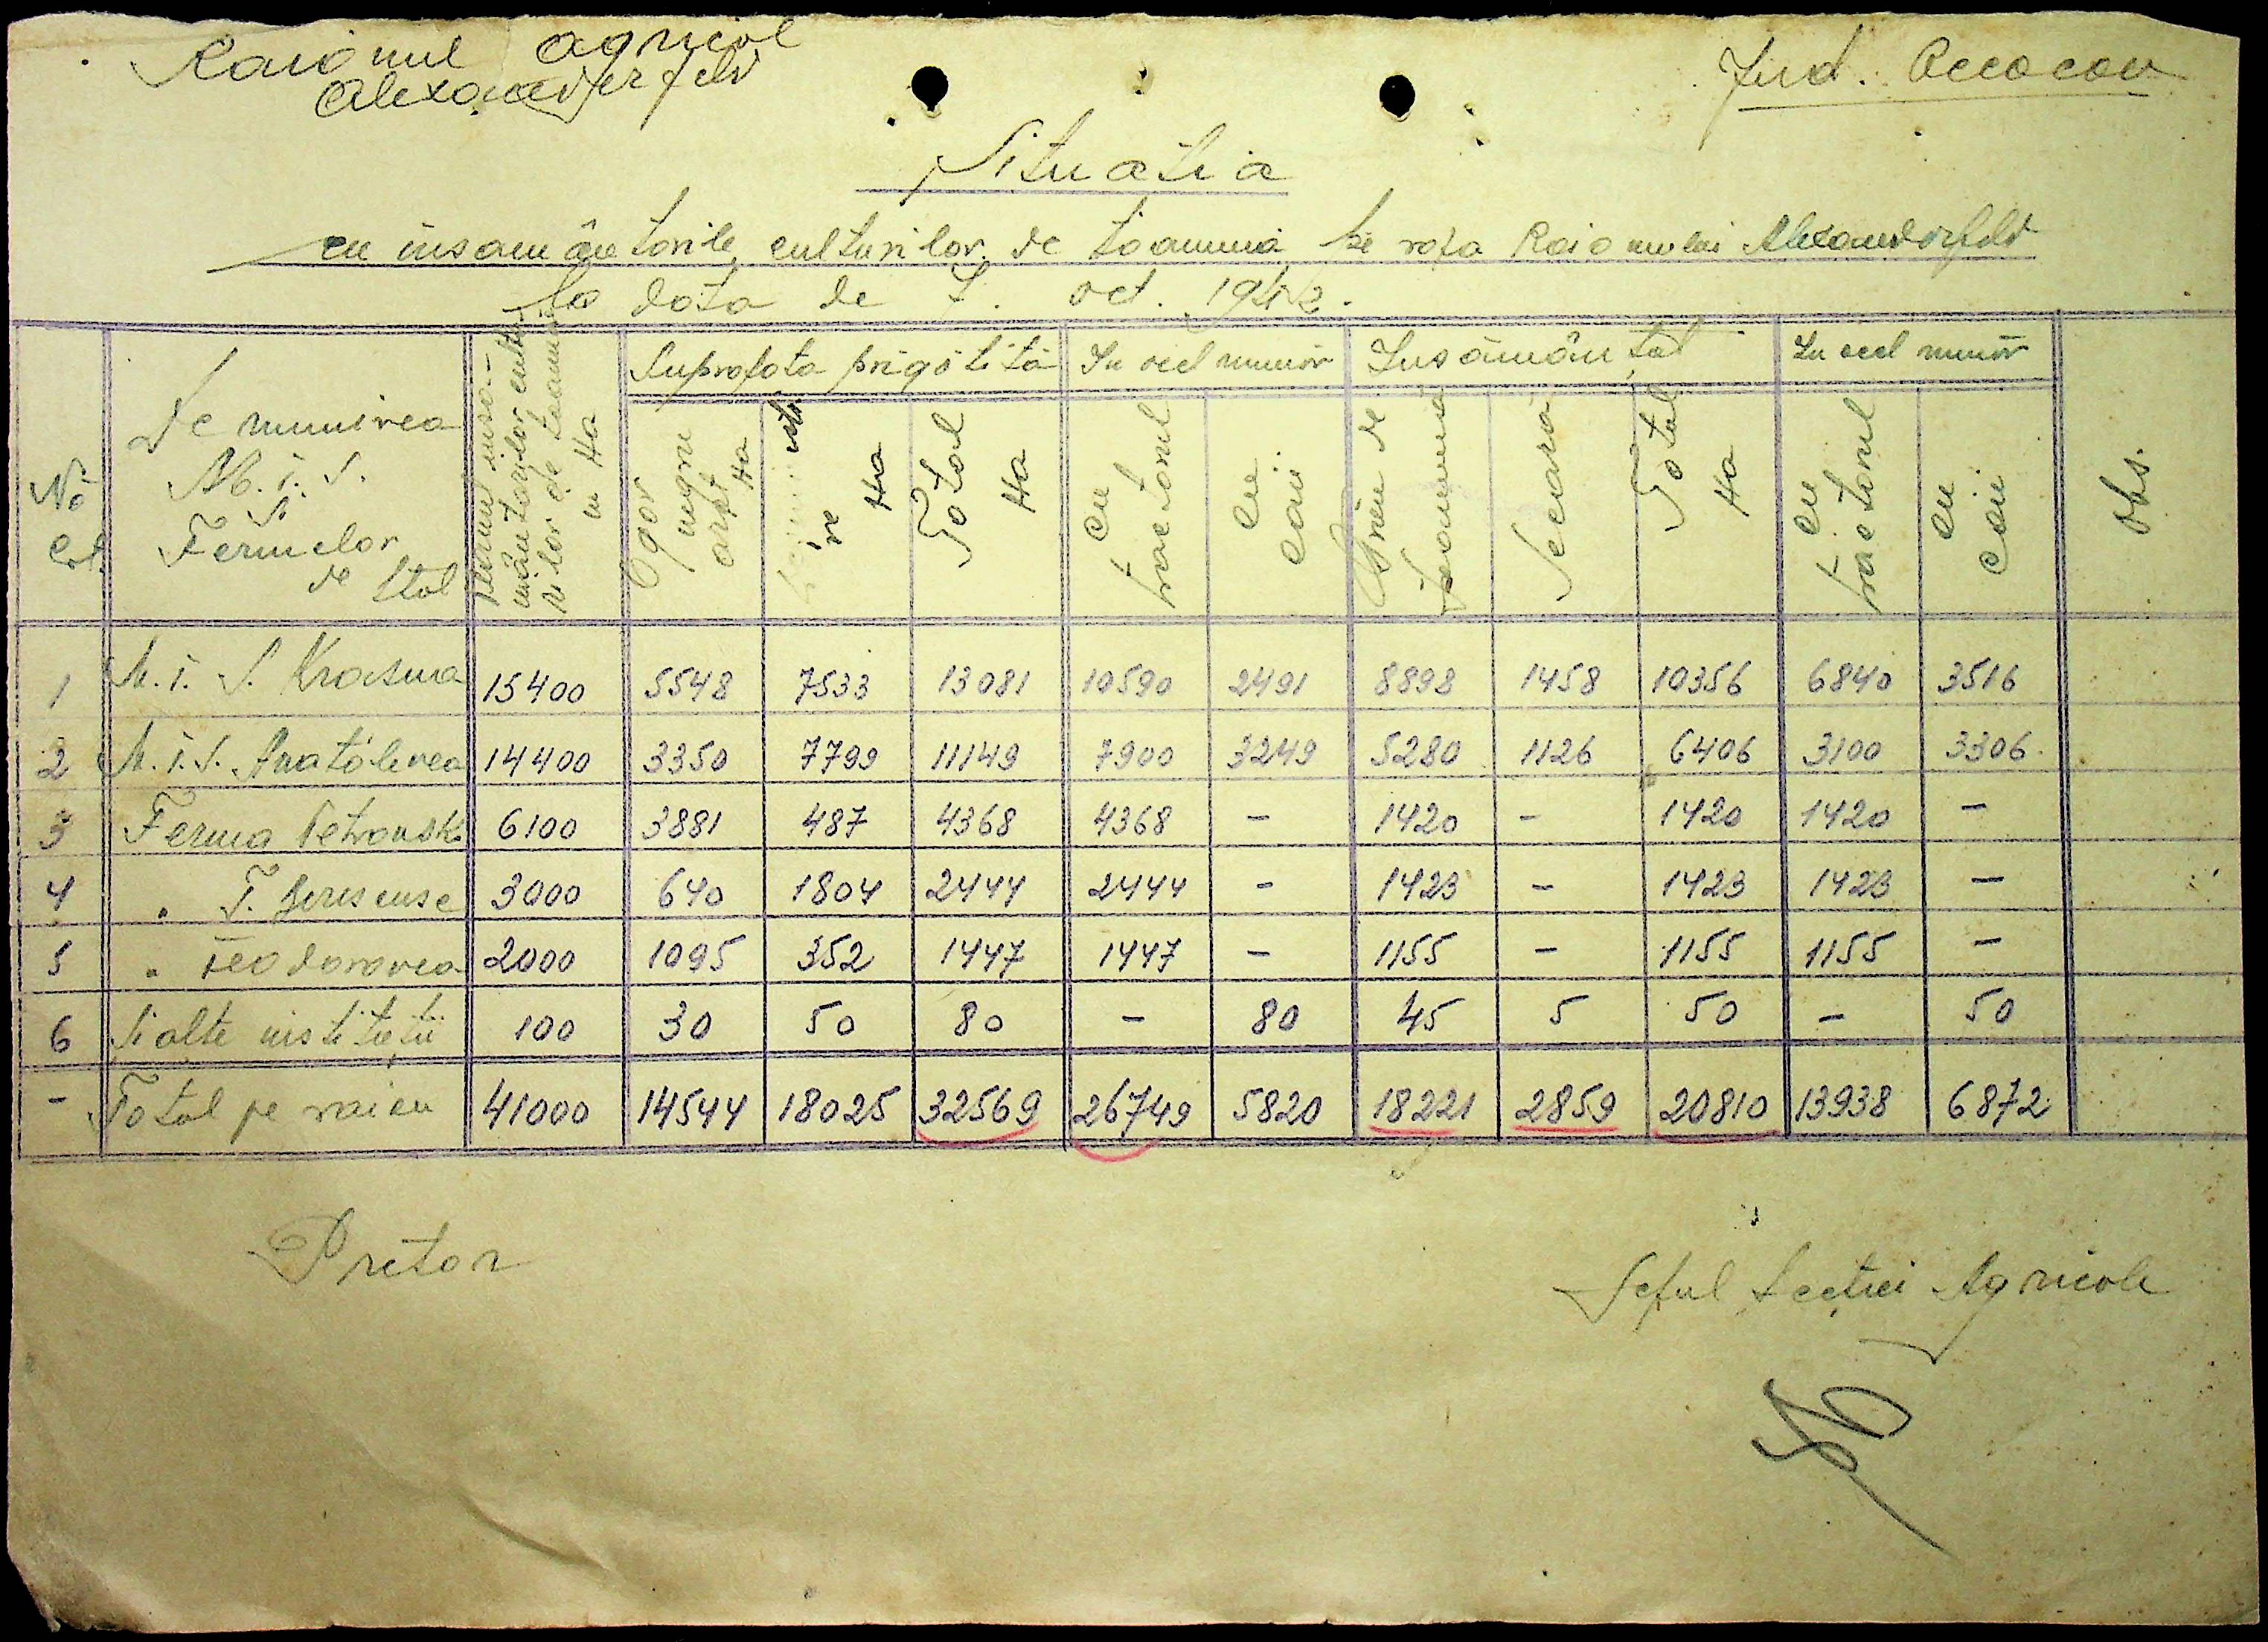 Raionul agricol
Alexanderfeld
Jud. Oceacov
Situatia
cu insamântarile culturilor de toamnă pe raza Raionului Alexanderfeld
la data de 7. oct. 1942.
No Crt. | Denumirea M.T.S. si Fermelor de Stat | insamântarilor culturilor de toamna in Ha | Suprafata prigătită | In acel număr | Insămânțat | In acel număr | Obs.
Ogor negru arat Ha | Ha | Total Ha | cu tractorul | cu cai | Grâu de toamnă | Secară | Total Ha | cu tractorul | cu cai
1 M.T.S. Krasna 15400 5548 7533 13081 10590 2491 8898 1458 10356 6840 3516
2 M.T.S. Anatolevca 14400 3350 7799 11149 7900 3249 5280 1126 6406 3100 3306
3 Ferma Petrovski 6100 3881 487 4368 4368 - 1420 - 1420 1420 -
4 " T. 3000 640 1804 2444 2444 - 1423 - 1423 1423 -
5 " Feodorovca 2000 1095 352 1447 1447 - 1155 - 1155 1155 -
6 Si alte institutii 100 30 50 80 - 80 45 5 50 - 50
- Total pe raion 41000 14544 18025 32569 26749 5820 18221 2859 20810 13938 6872
Pretor
Seful Secției Agricole